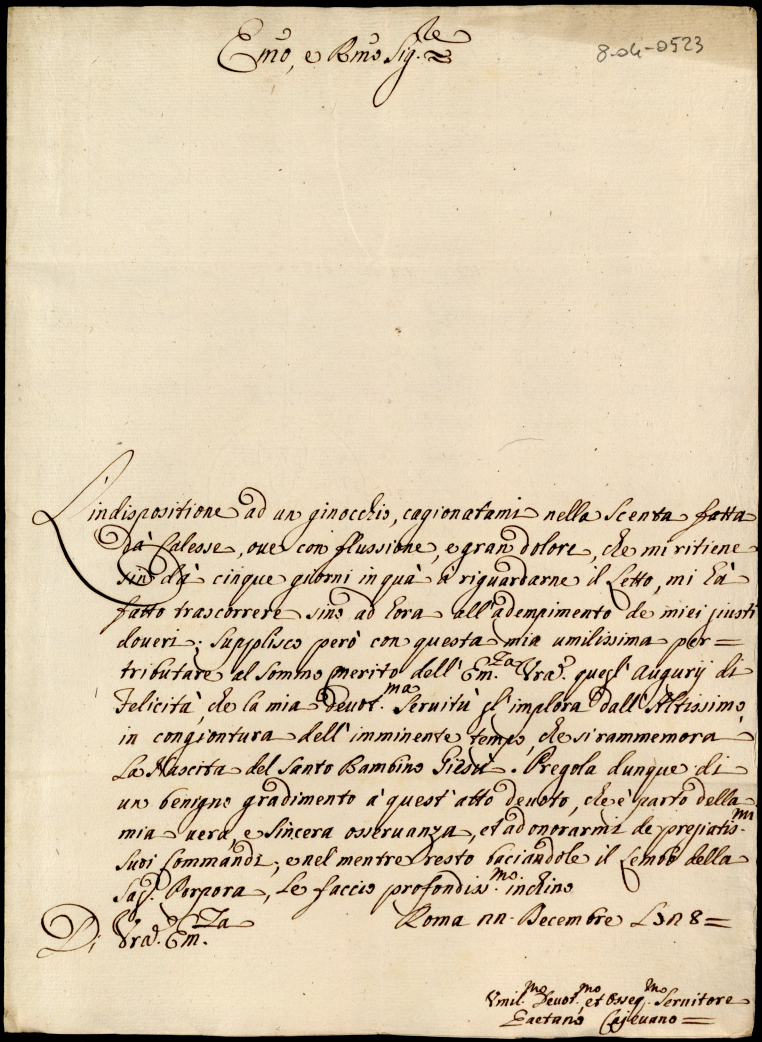 Emo, e Rmo Sig.re
8-04-0523
L'indispositione ad un ginocchio, cagionatami nella Scenta fatta
da Calesse, ove con flussione, e gran dolore, che mi ritiene
sin da cinque giorni in quà à riguardarne il Letto, mi hà
fatto trascorrere sino ad hora all'adempimento de miei giusti
doveri; Supplisco però con questa mia umilissima per=
tributare al Sommo merito dell' Em.za Vra. quegl' Augurij di
Felicità, che la mia devot.ma Servitù gl'implora dall'Altissimo
in congiontura dell'imminente tempo, che si rammemora
La Nascita del Santo Bambino Giesù. Pregola dunque di
un benigno gradimento à quest'atto devoto, che è parto della
mia vera, e sincera osservanza, et ad onorarmi de pregiatis.mi
Suoi Commandi; e nel mentre resto baciandole il Lembo della
Sag. Porpora, Le faccio profondiss.mo inchino
Di Vra. Em.za
Roma Decembre
Umil.mo Devot.mo et Osseq.mo Servitore
Gaetano